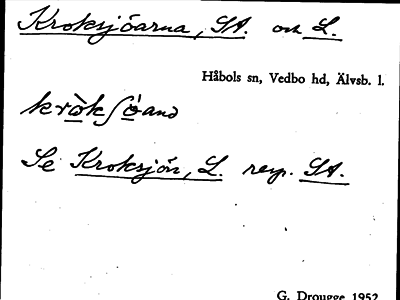 Kroksjöarna, St. och L.
Håbols sn, Vedbo hd, Älvsb. l.
kròkʃö́ana
Se Kroksjön, L. resp. St.
G. Drougge 1952